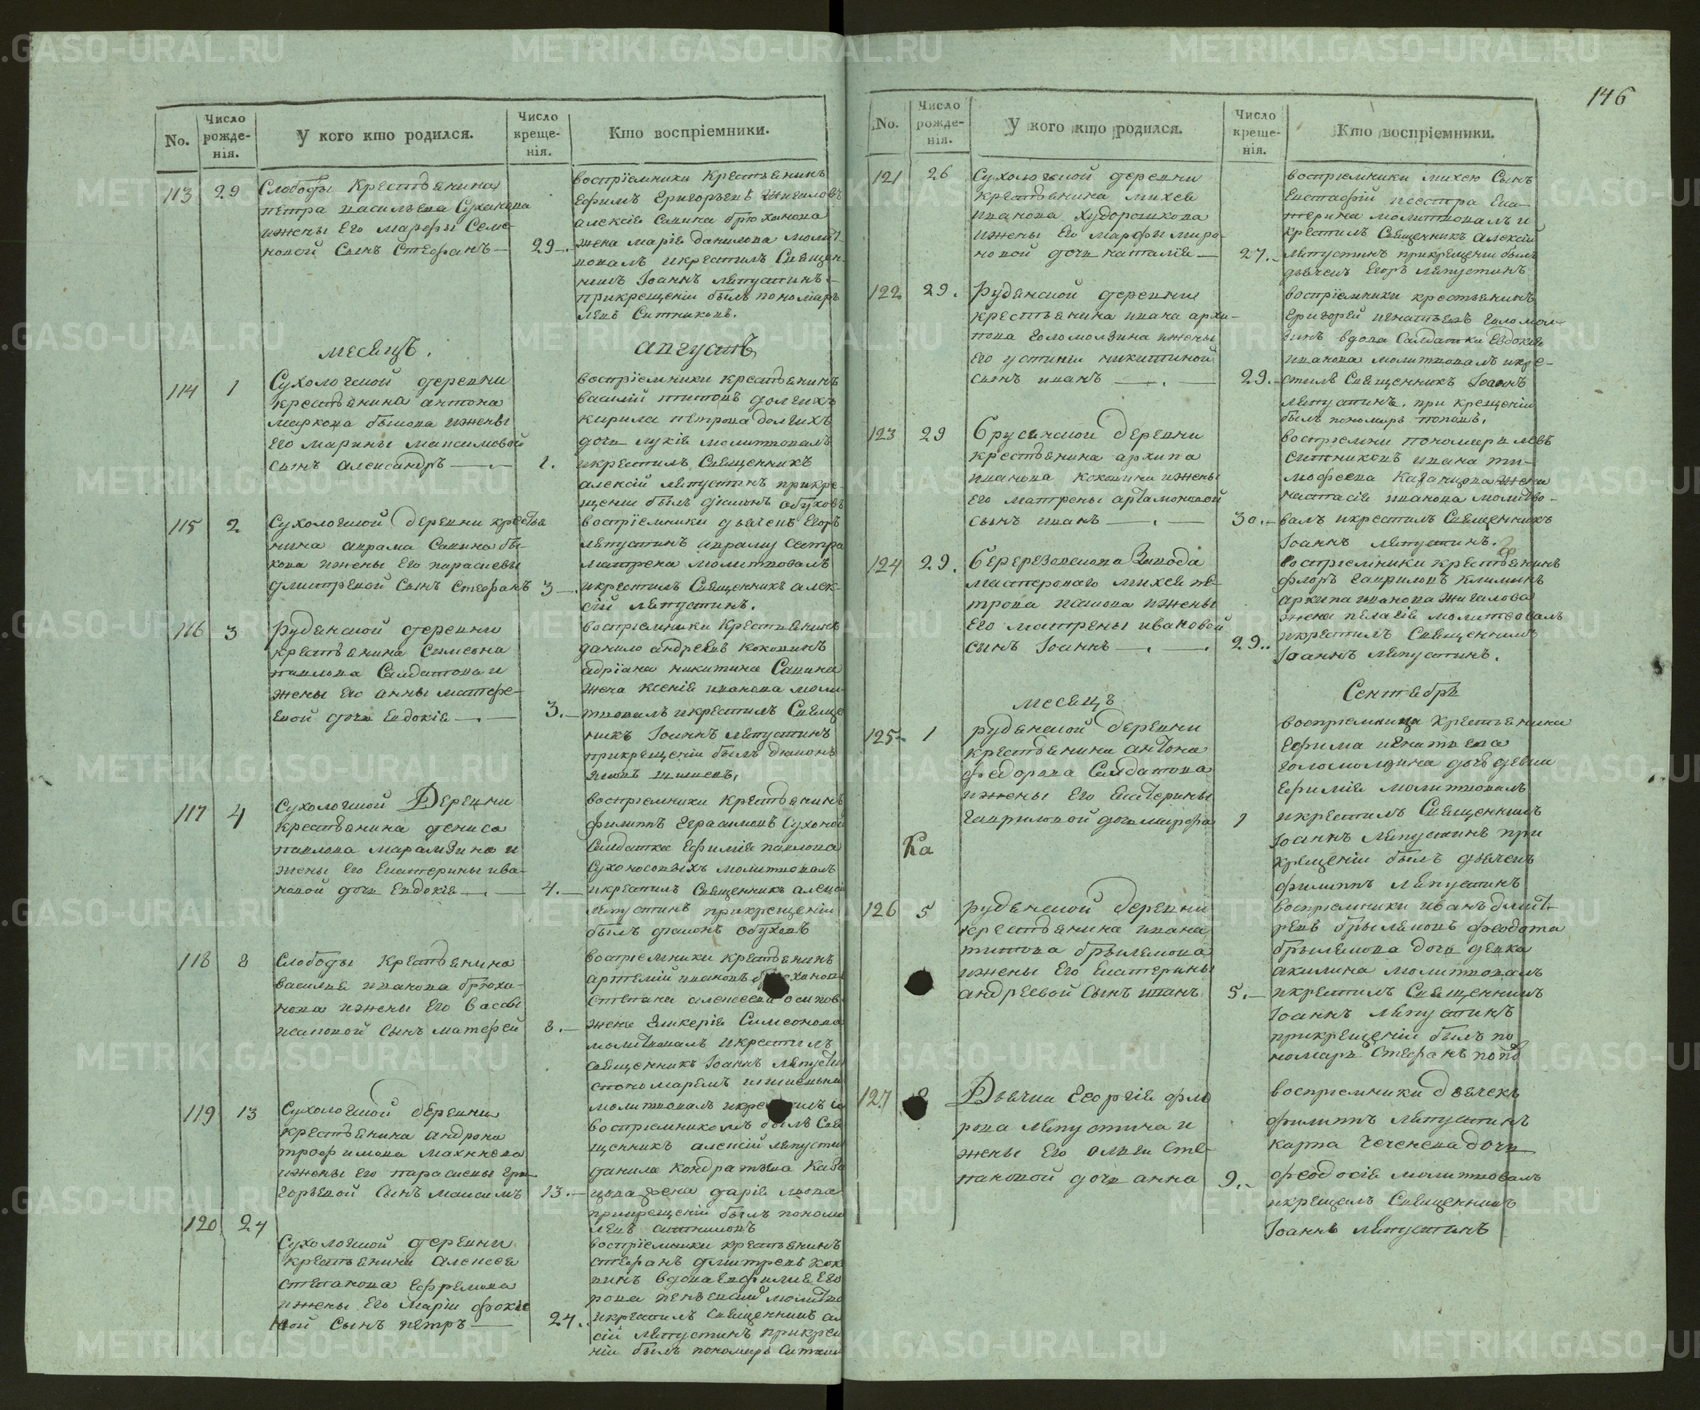 146
No.
Число рожде-нія.
У кого кто родился.
Число креще-нія.
Кто воспріемники.
113 29 Слободы Крестьянина
петра васильева Суханова
ижены Его Марфы Семе-
новой Сынъ Стефанъ — 29
воспріемники Крестьянинъ
Ефимъ Григорьевъ
алексея Савина брюханова
жена марія данилова молит-
вовалъ икрестилъ Священ-
никъ Іоаннъ Ляпустинъ
прикрещеніи былъ пономарь
Левъ Ситниковъ.
месяцъ. августъ
114 1 Сухоложской деревни
крестьянина антона
маркова быкова ижены
Его Марины максимовой
сынъ александръ — 1.
воспріемники крестьянинъ
василій титовъ долгихъ
кирила петрова долгихъ
дочь лукія молитвовалъ
икрестилъ Священникъ
алексій ляпустинъ прикре-
щеніи былъ діаконъ обуховъ
115 2 Сухоложской деревни крестья
нина аврама Савина бы-
кова ижены Его парасковьи
дмитревой Сынъ Стефанъ 3
воспріемники дьячекъ Егоръ
ляпустинъ авраму сестра
матрена молитвовалъ
икрестилъ Священникъ алек-
сій ляпустинъ.
116 3 Рудянской деревни
крестьянина Симеона
павлова Салдатова и
жены Его анны матфе-
евой дочь Евдокія — 3.
воспріемники Крестьянинъ
данило андреевъ кокшинъ
адріана никитина Савина
жена ксенія иванова моли-
твовалъ икрестилъ Свяще
никъ Іоаннъ ляпустинъ
прикрещеніи былъ діаконъ
117 4 Сухоложской Деревни
крестьянина дениса
павлова Марамзина и
жены Его Екатерины ива-
новой дочь Евдокія — 4.
воспріемники Крестьянинъ
филиппъ Герасимовъ Сухонос
Салдатка Ефимія павлова
Сухоносовыхъ молитвовалъ
икрестилъ Священникъ алексій
ляпустинъ прикрещеніи
былъ діаконъ обуховъ
118 8 Слободы Крестьянина
василья иванова брюха-
нова ижены Его Вассы
исаковой Сынъ матфей 8.
воспріемники крестьянинъ
артемій ивановъ брюхановъ
Степана алексеева осипов
жена Гликерія Симеонова
молитвовалъ икрестилъ
священникъ Іоаннъ ляпусти
119 13 Сухоложской деревни
крестьянина андрона
трофимова Махнева
ижены Его парасковьи Гри-
горьевой Сынъ максимъ 13.
воспріемникомъ былъ Свя
щенникъ алексій ляпусти
данила кондратьева
жена дарія
прикрещеніи былъ понома
левъ ситниковъ
120 24 Сухоложской деревни
крестьянина алексея
степанова Ефремова
ижены Его Маріи фокіе
вой Сынъ петръ — 24.
воспріемники крестьянинъ
стефанъ дмитревъ
икрестилъ священникъ але
сій ляпустинъ прикреще
ніи былъ пономарь Ситник
No.
Число рожде-нія.
У кого кто родился.
Число креще-нія.
Кто воспріемники.
121 26 Сухоложской деревни
крестьянина михея
иванова худорошкова
ижены Его марфы миро-
новой дочь наталія — 27.
воспріемники михею Сынъ
Евстафій исестра Ека-
терина молитвовалъ и
крестилъ Священникъ алексій
ляпустинъ прикрещеніи былъ
дьячекъ Егоръ ляпустинъ
122 29. Рудянской деревни
крестьянина ивана архи-
пова Голомолзина ижены
Его устиніи никитиной
сынъ иванъ — 29.
воспріемники крестьянинъ
Григорей игнатьевъ голомол-
зинъ вдова Салдатка Евдокія
иванова молитвовалъ икре-
стилъ Священникъ Іоаннъ
ляпустинъ. при крещеніи
былъ пономарь поповъ.
123 29 Брусянской деревни
крестьянина архипа
иванова кокшина ижены
Его матрены артамоновой
сынъ иванъ — 30.
воспріемни пономарь левъ
ситниковъ ивана ти-
мофеева казанцова жена
настасія иванова молитво-
валъ икрестилъ Священникъ
Іоаннъ ляпустинъ.
124 29. Березовскова Завода
мастероваго михея пе-
трова ижены
Его матрены ивановой
сынъ Іоаннъ — 29.
воспріемники крестьянинъ
флоръ гавриловъ климинъ
архипа иванова жигалова
жена пелагія молитвовалъ
икрестилъ Священникъ
Іоаннъ ляпустинъ.
месяцъ Сентябрь
125 1 рудянской деревни
крестьянина антона
федорова Салдатова
ижены Его Екатерины
Гавриловой дочь марфа 1
воспріемница крестьянина
Ефима игнатьева
голомолзина дочь девка
Ефимія молитвовалъ
икрестилъ Священникъ
Іоаннъ ляпустинъ при
крещеніи былъ дьячекъ
филиппъ ляпустинъ
Ка
126 5 рудянской деревни
крестьянина ивана
титова брылякова
ижены Его Екатерины
андреевой Сынъ иванъ 5.
воспріемники иванъ дмит-
ревъ брыляковъ феодота
брылякова дочь девка
акилина молитвовалъ
икрестилъ Священникъ
Іоаннъ ляпустинъ
прикрещеніи былъ по
номарь Стефанъ попо
127 8 Дьячка Георгія фло
рова ляпустина и
жены Его Сте-
пановой дочь анна 9.
воспріемники дьячекъ
филиппъ ляпустинъ
карпа дочь
феодосія молитвовалъ
икрещалъ Священникъ
Іоаннъ ляпустинъ
METRIKI.GASO-URAL.RU